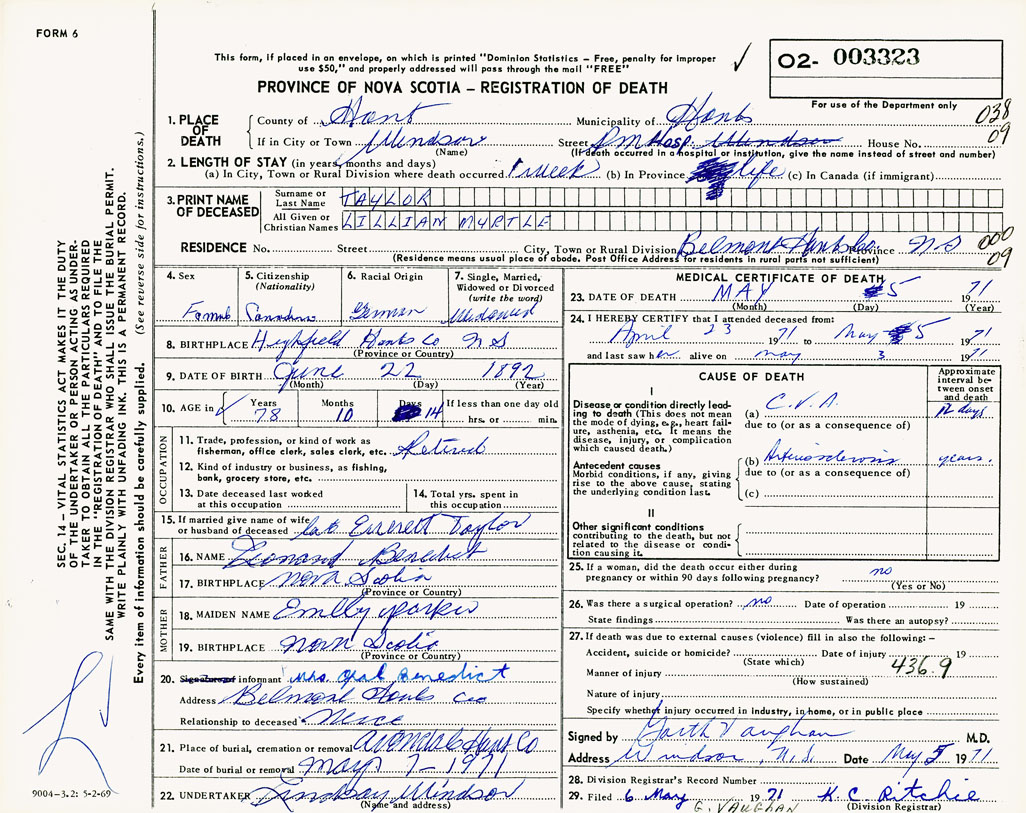 FORM 6
This form, if placed in an envelope, on which is printed "Dominion Statistics – Free, penalty for improper
use $50," and properly addressed will pass through the mail "FREE"
O2- 003323
PROVINCE OF NOVA SCOTIA – REGISTRATION OF DEATH
For use of the Department only
038
09
1. PLACE OF DEATH
County of Hant Municipality of Hants
If in City or Town Windsor Street P M Hosp. Windsor House No.
(Name) (If death occurred in a hospital or institution, give the name instead of street and number)
2. LENGTH OF STAY (in years, months and days)
(a) In City, Town or Rural Division where death occurred 1 week (b) In Province life (c) In Canada (if immigrant)
3. PRINT NAME OF DECEASED
Surname or Last Name TAYLOR
All Given or Christian Names LILLIAN MYRTLE
RESIDENCE No. Street City, Town or Rural Division Belmont Hants Co. Province N S
000
09
(Residence means usual place of abode. Post Office Address for residents in rural parts not sufficient)
4. Sex
Female
5. Citizenship (Nationality)
Canadian
6. Racial Origin
German
7. Single, Married, Widowed or Divorced (write the word)
Widowed
8. BIRTHPLACE Highfield Hants Co N S
(Province or Country)
9. DATE OF BIRTH June 22 1892
(Month) (Day) (Year)
10. AGE in Years Months Days If less than one day old
78 10 14 hrs. or min.
OCCUPATION
11. Trade, profession, or kind of work as fisherman, office clerk, sales clerk, etc. Retired
12. Kind of industry or business, as fishing, bank, grocery store, etc.
13. Date deceased last worked at this occupation
14. Total yrs. spent in this occupation
15. If married give name of wife or husband of deceased late Everett Taylor
FATHER
16. NAME Leonard Benedict
17. BIRTHPLACE Nova Scotia
(Province or Country)
MOTHER
18. MAIDEN NAME Emily Parker
19. BIRTHPLACE Nova Scotia
(Province or Country)
20. Signature of informant Mrs Opal Benedict
Address Belmont Hants Co
Relationship to deceased Niece
21. Place of burial, cremation or removal Avondale Hants Co
Date of burial or removal May 7 – 1971
22. UNDERTAKER Lindsay Windsor
(Name and address)
MEDICAL CERTIFICATE OF DEATH
23. DATE OF DEATH MAY 5 1971
(Month) (Day) (Year)
24. I HEREBY CERTIFY that I attended deceased from:
April 23 1971 to May 5 1971
and last saw her alive on May 3 1971
CAUSE OF DEATH
Approximate interval between onset and death
I
Disease or condition directly leading to death (This does not mean the mode of dying, e.g., heart failure, asthenia, etc. It means the disease, injury, or complication which caused death.)
(a) C.V.A. 12 days
due to (or as a consequence of)
Antecedent causes
Morbid conditions, if any, giving rise to the above cause, stating the underlying condition last.
(b) Arteriosclerosis years.
due to (or as a consequence of)
(c)
II
Other significant conditions contributing to the death, but not related to the disease or condition causing it.
25. If a woman, did the death occur either during pregnancy or within 90 days following pregnancy? no
(Yes or No)
26. Was there a surgical operation? no Date of operation 19
State findings Was there an autopsy?
27. If death was due to external causes (violence) fill in also the following: –
Accident, suicide or homicide? Date of injury 19
(State which)
Manner of injury 436.9
(How sustained)
Nature of injury
Specify whether injury occurred in industry, in home, or in public place
Signed by Garth Vaughan M.D.
Address Windsor, N.S. Date May 5 1971
28. Division Registrar's Record Number
29. Filed 6 May 1971 K. C. Ritchie
G. VAUGHAN (Division Registrar)
SEC. 14 – VITAL STATISTICS ACT MAKES IT THE DUTY
OF THE UNDERTAKER OR PERSON ACTING AS UNDER-
TAKER TO OBTAIN ALL THE PARTICULARS REQUIRED
IN THE "REGISTRATION OF DEATH" AND TO FILE THE
SAME WITH THE DIVISION REGISTRAR WHO SHALL ISSUE THE BURIAL PERMIT.
WRITE PLAINLY WITH UNFADING INK. THIS IS A PERMANENT RECORD.
Every item of information should be carefully supplied. (See reverse side for instructions.)
9004–3.2: 5-2-69